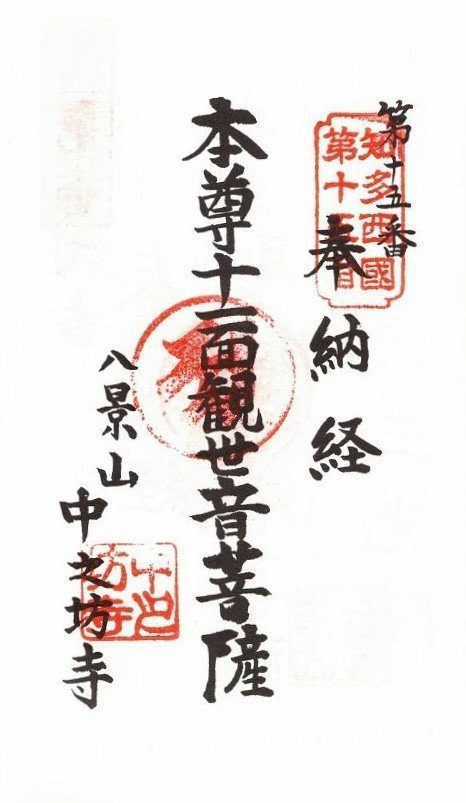 第十五番
知多西國
第十五番
奉納経
本尊十一面観世音菩薩
八景山
中之坊寺
中之
坊寺